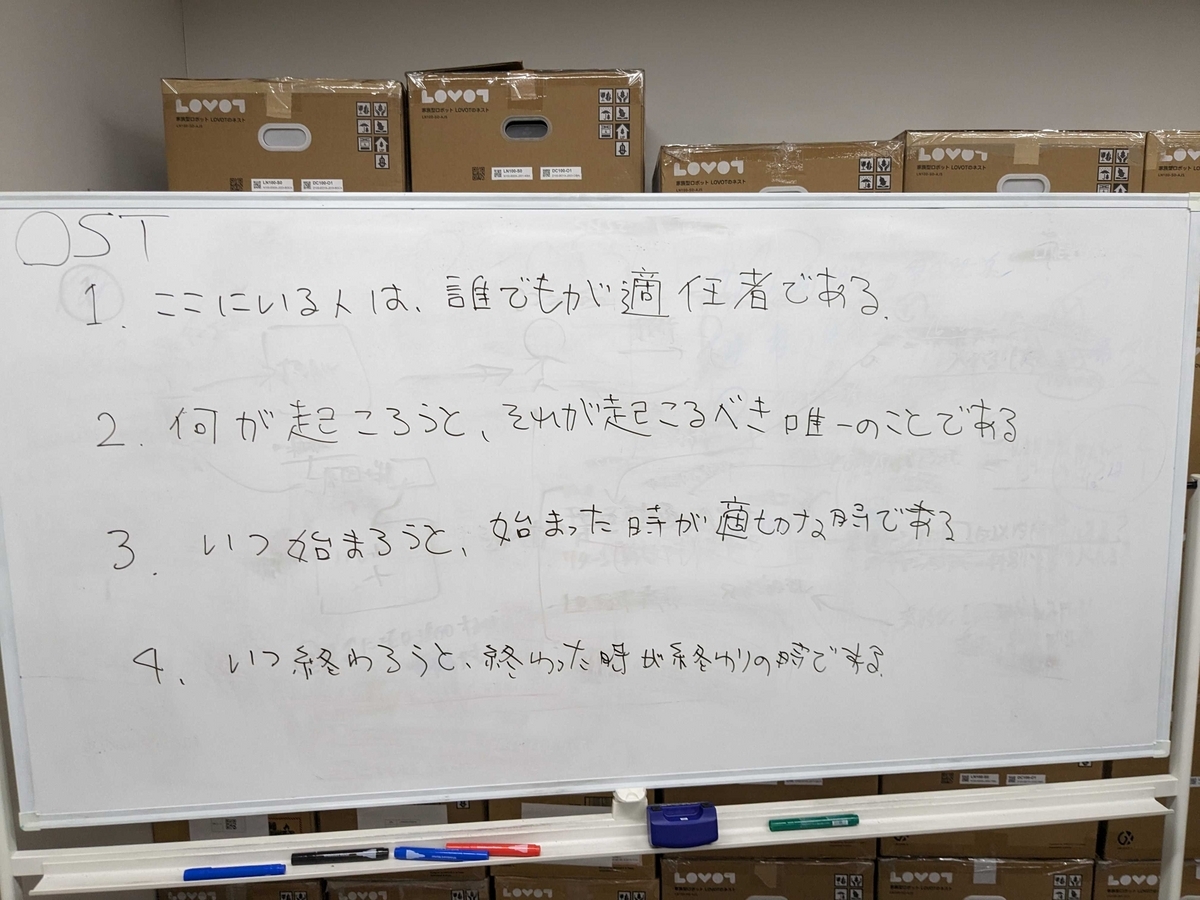 LOVOT
家族型ロボット LOVOTのネスト
LOVOT
家族型ロボット LOVOTのネスト
LN100-S0
DC100-O1
LN100-S0
DC100-O1
LOVOT
家族型ロボット LOVOTのネスト
LOVOT
家族型ロボット LOVOTのネスト
LOVOT
OST
1. ここにいる人は、誰でもが適任者である.
2. 何が起ころうと、それが起こるべき唯一のことである
3. いつ始まろうと、始まった時が適切な時である
4. いつ終わろうと、終わった時が終わりの時である.
LOVOT
LOVOT
LOVOT